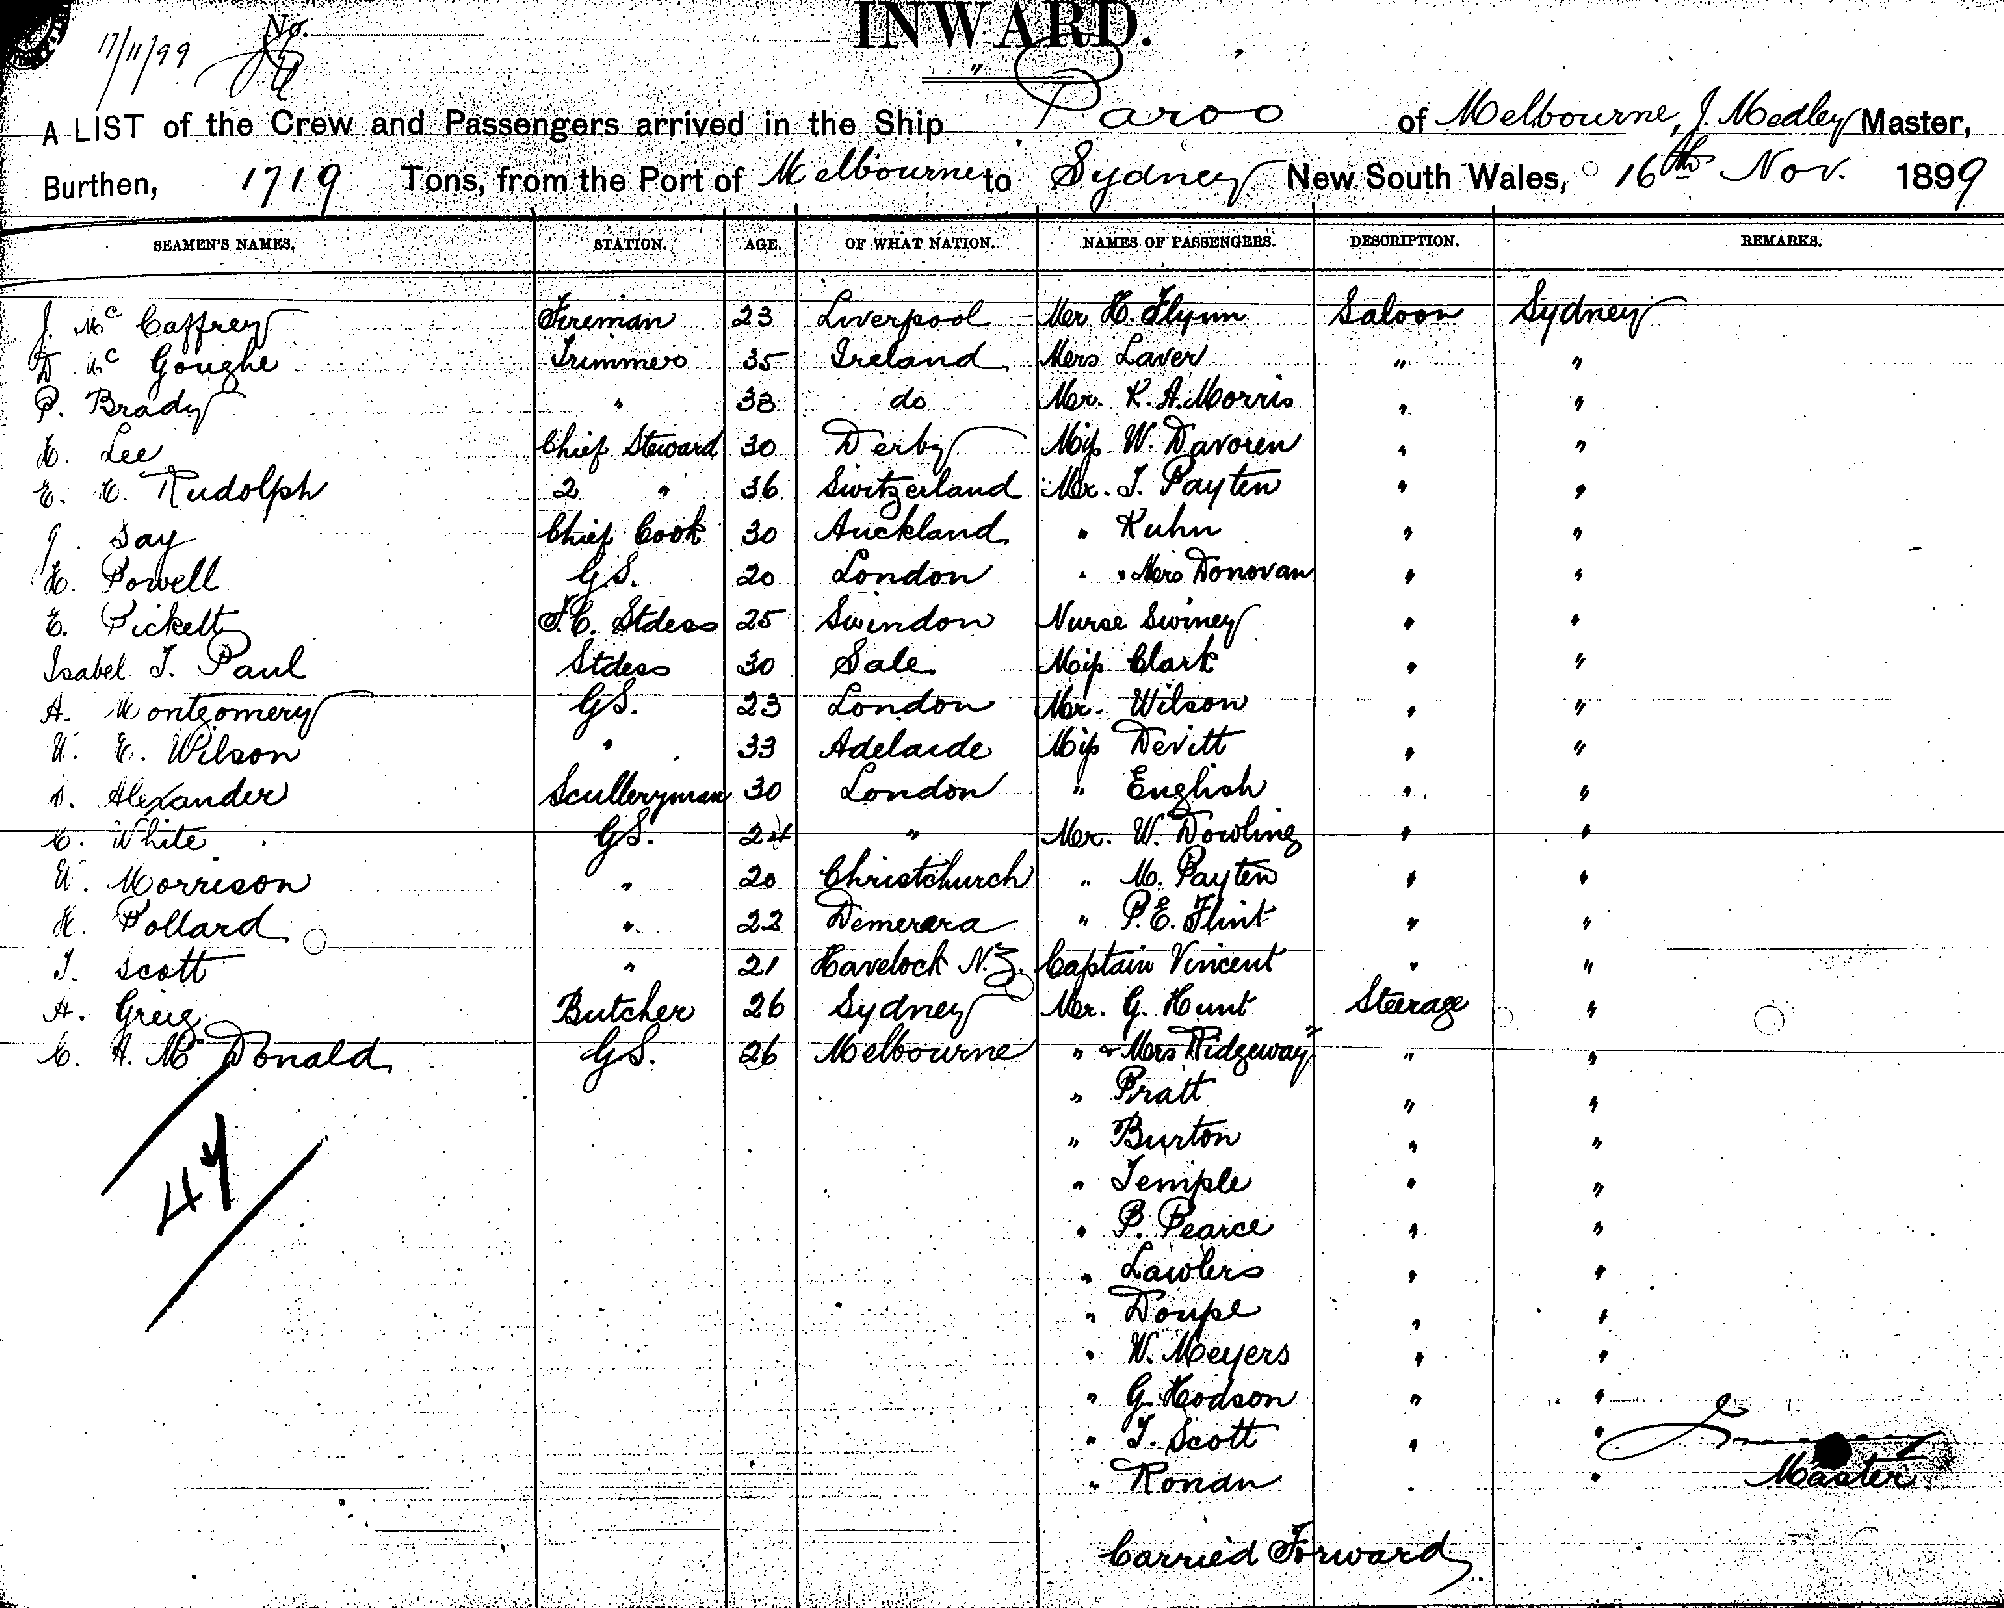 INWARD.
17/11/99 No.
A LIST of the Crew and Passengers arrived in the Ship Paroo of Melbourne, J. Medley Master,
Burthen, 1719 Tons, from the Port of Melbourne to Sydney New South Wales, 16th Nov. 1899
SEAMEN'S NAMES. STATION. AGE. OF WHAT NATION. NAMES OF PASSENGERS. DESCRIPTION. REMARKS.
J. Mc Caffrey Fireman 23 Liverpool Mr H. Flynn Saloon Sydney
D Mc Goughe Trimmer 35 Ireland Mrs Laver " "
P. Brady " 33 do Mr. K. A. Morris " "
H. Lee Chief Steward 30 Derby Miss W. Davoren " "
E. E. Rudolph 2 " 36 Switzerland Mr. T. Payten " "
J. Day Chief Cook 30 Auckland " Kuhn " "
H. Powell GS. 20 London " " Mrs Donovan " "
E. Pickett F.C. Stdess 25 Swindon Nurse Swiney " "
Isabel T. Paul Stdess 30 Sale Miss Clark " "
A. Montgomery GS. 23 London Mr. Wilson " "
W. E. Wilson " 33 Adelaide Miss Devitt " "
D. Alexander Sculleryman 30 London " English " "
C. White GS. 24 " Mr. W. Dowling " "
W. Morrison " 20 Christchurch " M. Payten " "
H. Pollard " 22 Demerara " P. E. Flint " "
T. Scott " 21 Havelock N.Z. Captain Vincent " "
A. Greig Butcher 26 Sydney Mr. G. Hunt Steerage "
C. A. Mc Donald GS. 26 Melbourne " & Mrs Ridgeway " "
" Pratt " "
" Burton " "
" Temple " "
" P. Pearce " "
" Lawlers " "
" Doupe " "
" W. Meyers " "
" G. Hodson " "
" T. Scott " "
" Ronan " "
47
Master
Carried Forward